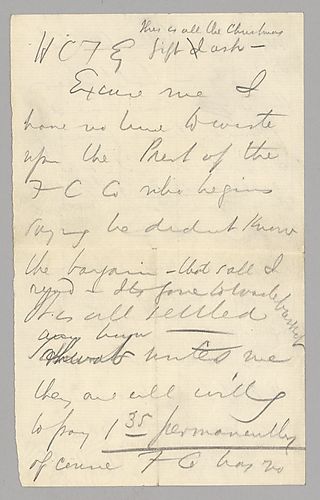 This is all the Christmas
gift I ask —
Excuse me I
have no time to waste
upon the Prest of the
F C Co who begins
saying he didnt know
the bargain — thats all I
read — Its gone to waste basket
It is all settled
writes me
they are all willg
to pay 1 35 permanently
of course F Co has no